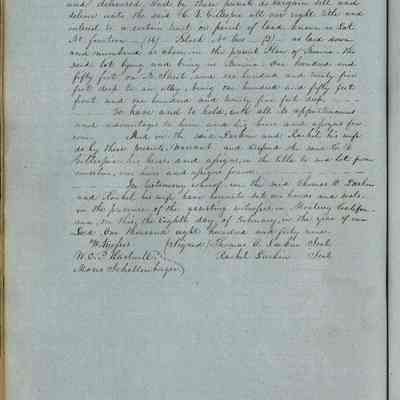 and delivered, and by these presents do bargain sell and
deliver unto the said C. V. Gillespie all our right title and
interest to a certain tract or parcel of land known as Lot
No fourteen (14) Block No two (2) as laid down
and numbered as above in the present Plan of Benicia. The
said lot lying and being in Benicia One hundred and
fifty feet on Street and one hundred and twenty five
feet deep to an alley, being one hundred and fifty feet
front and one hundred and twenty five feet deep.
To have and to hold, with all its appurtenances
and advantages to him and his heirs and assigns for
ever. And we the said Larkin and Rachel his wife
do by these presents, Warrant and Defend the said C. V.
Gillespie his heirs and assigns, in the title to said lot from
ourselves, our heirs and assigns forever.
In testimony whereof, we the said Thomas O. Larkin
and Rachel his wife, have hereunto set our hands and seals
in the presence of the assisting witnesses, in Monterey Califor-
nia, on this, the Eighth day, of February, in the year of our
Lord One thousand eight hundred and forty nine.
Witnesses (Signed) Thomas O. Larkin Seal
W. E. P. Hartnell Rachel Larkin Seal
Moris Schollenberger